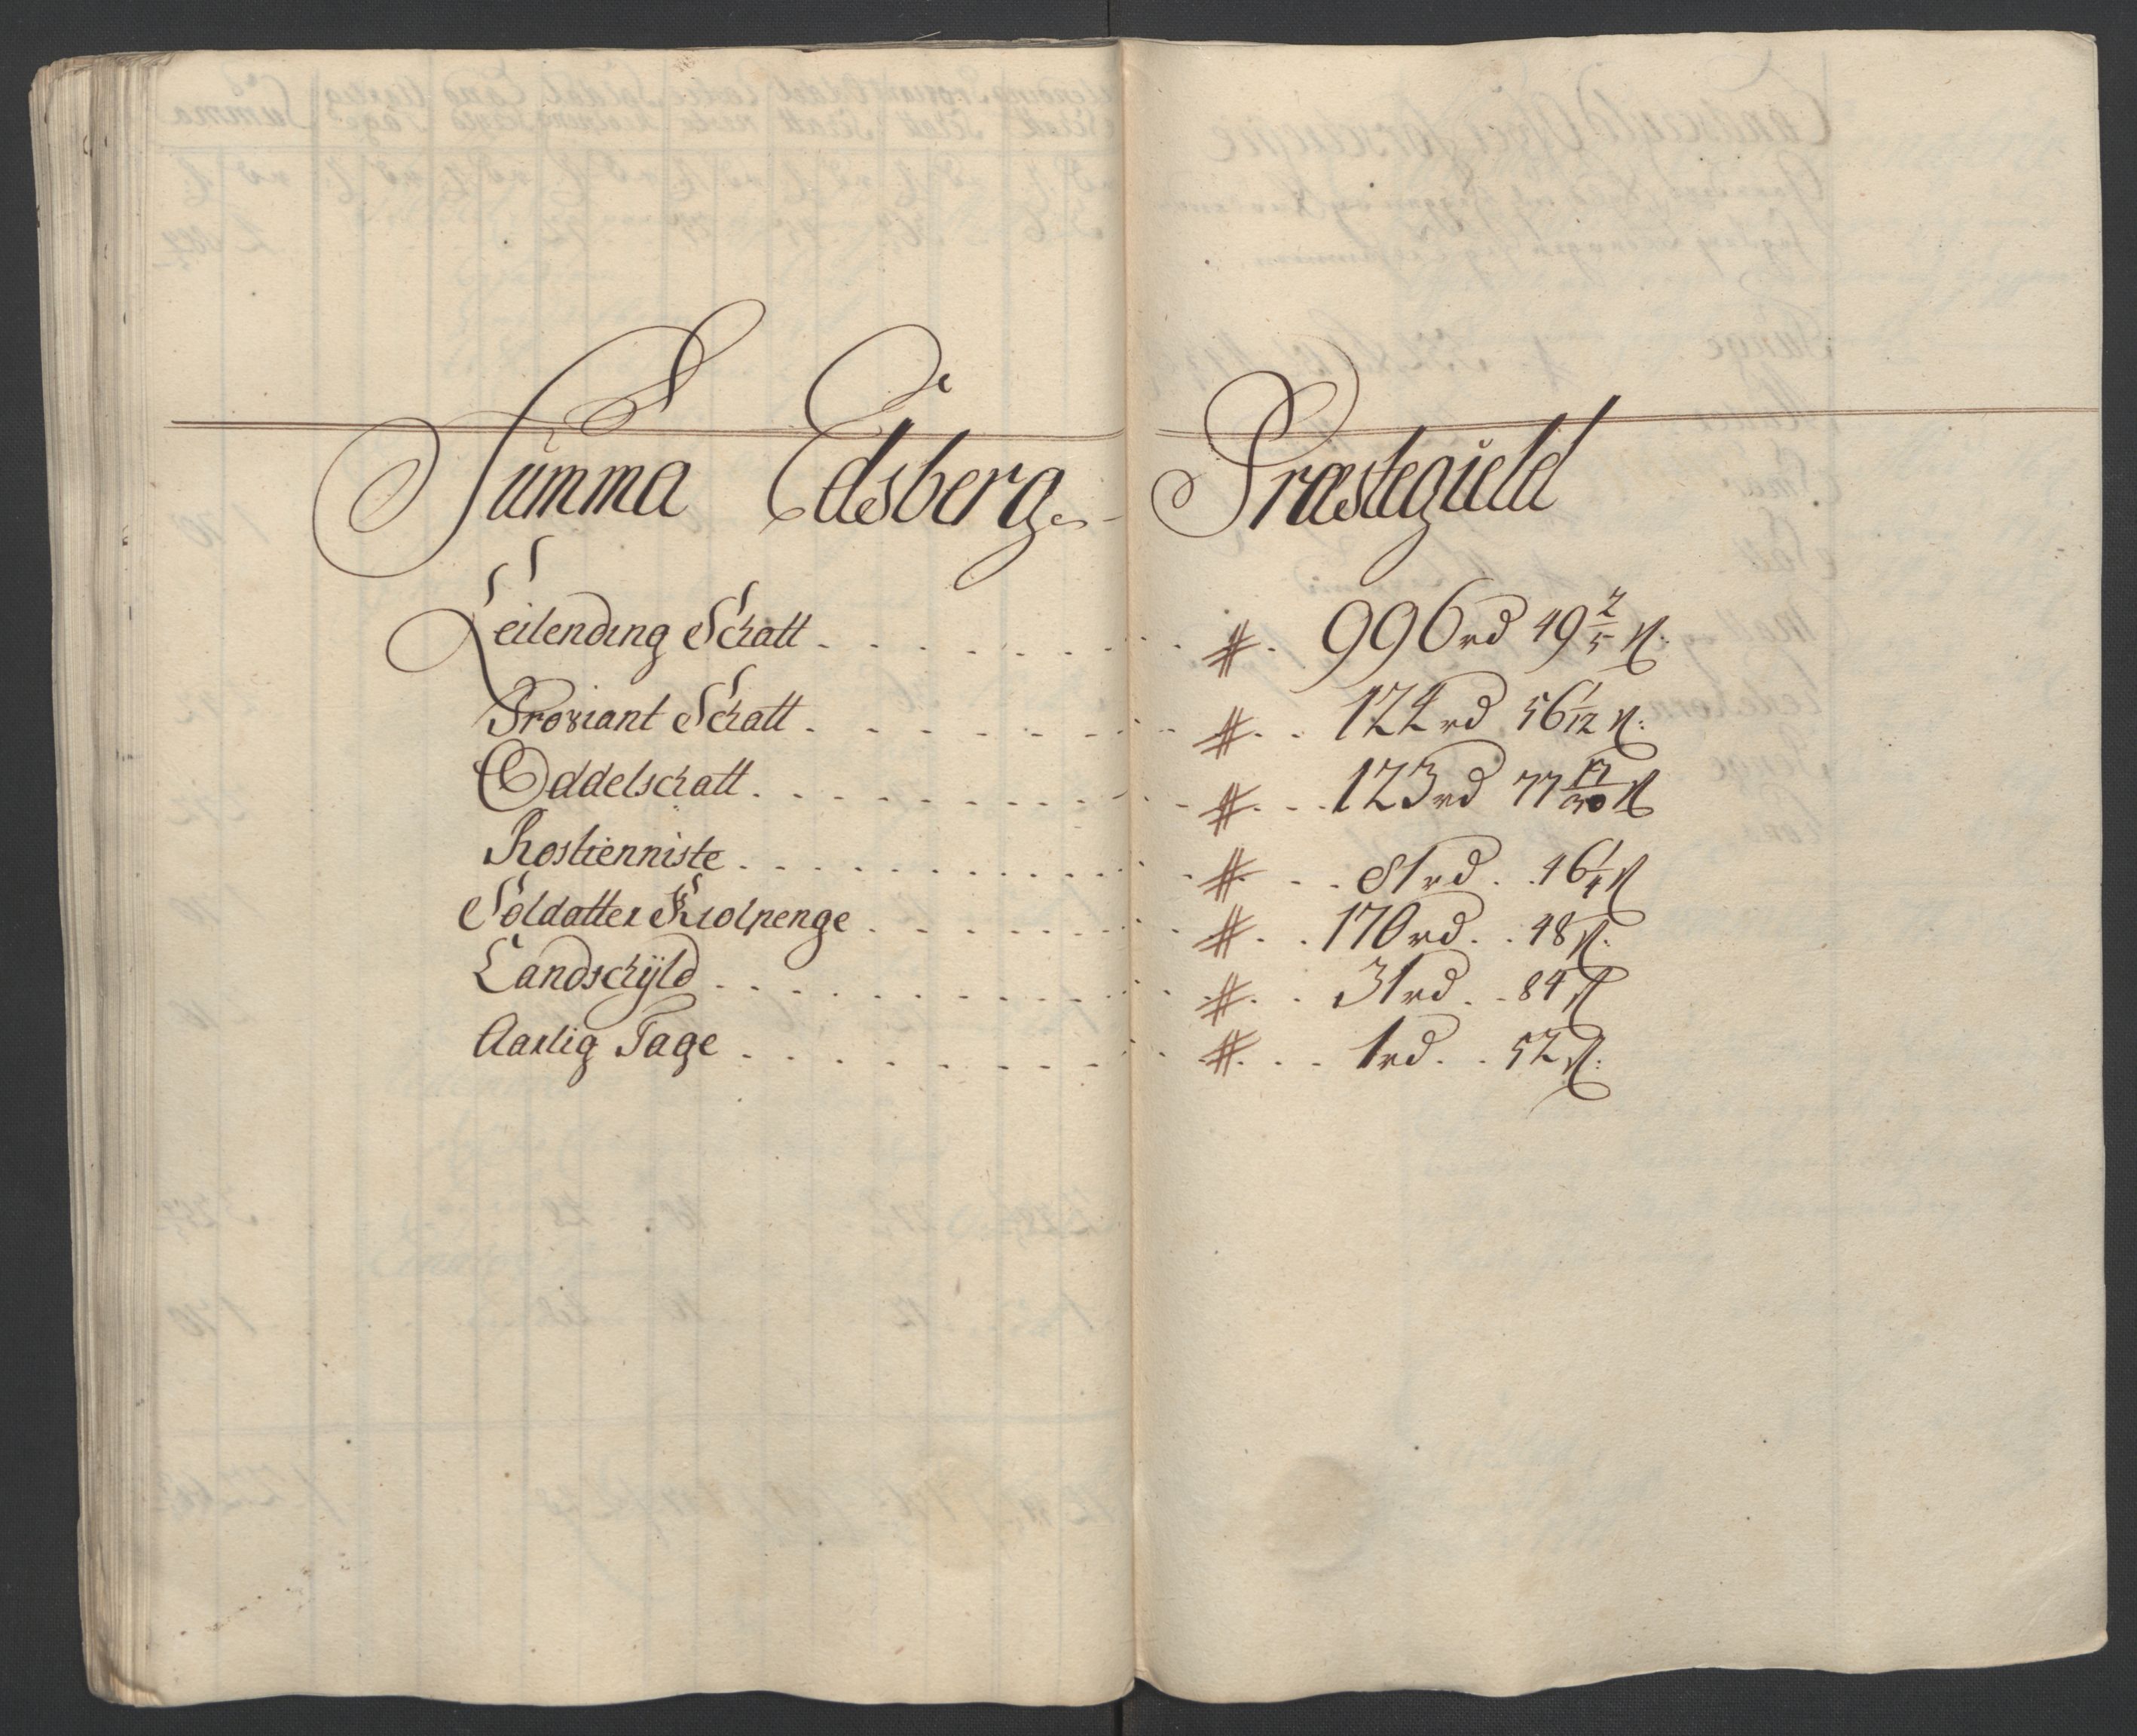 Summa Edsberg Præstegield
Leilending Schatt . . . . . . . . # . 996 rd 49 2/5 ß.
Proviant Schatt . . . . . . . . # . . 124 rd 56 1/12 ß.
Oddelschatt . . . . . . . . . . # . . . 123 rd 77 17/30 ß
Rostienniste . . . . . . . . . . # . . . 81 rd . . 46 1/4 ß
Soldatter Kiolpenge . . . . . . . # . . 170 rd . . 48 ß.
Landschÿld . . . . . . . . . . # . . 31 rd . . 84 ß
Aarlig Tage . . . . . . . . . # . . . 1 rd . . 52 ß.